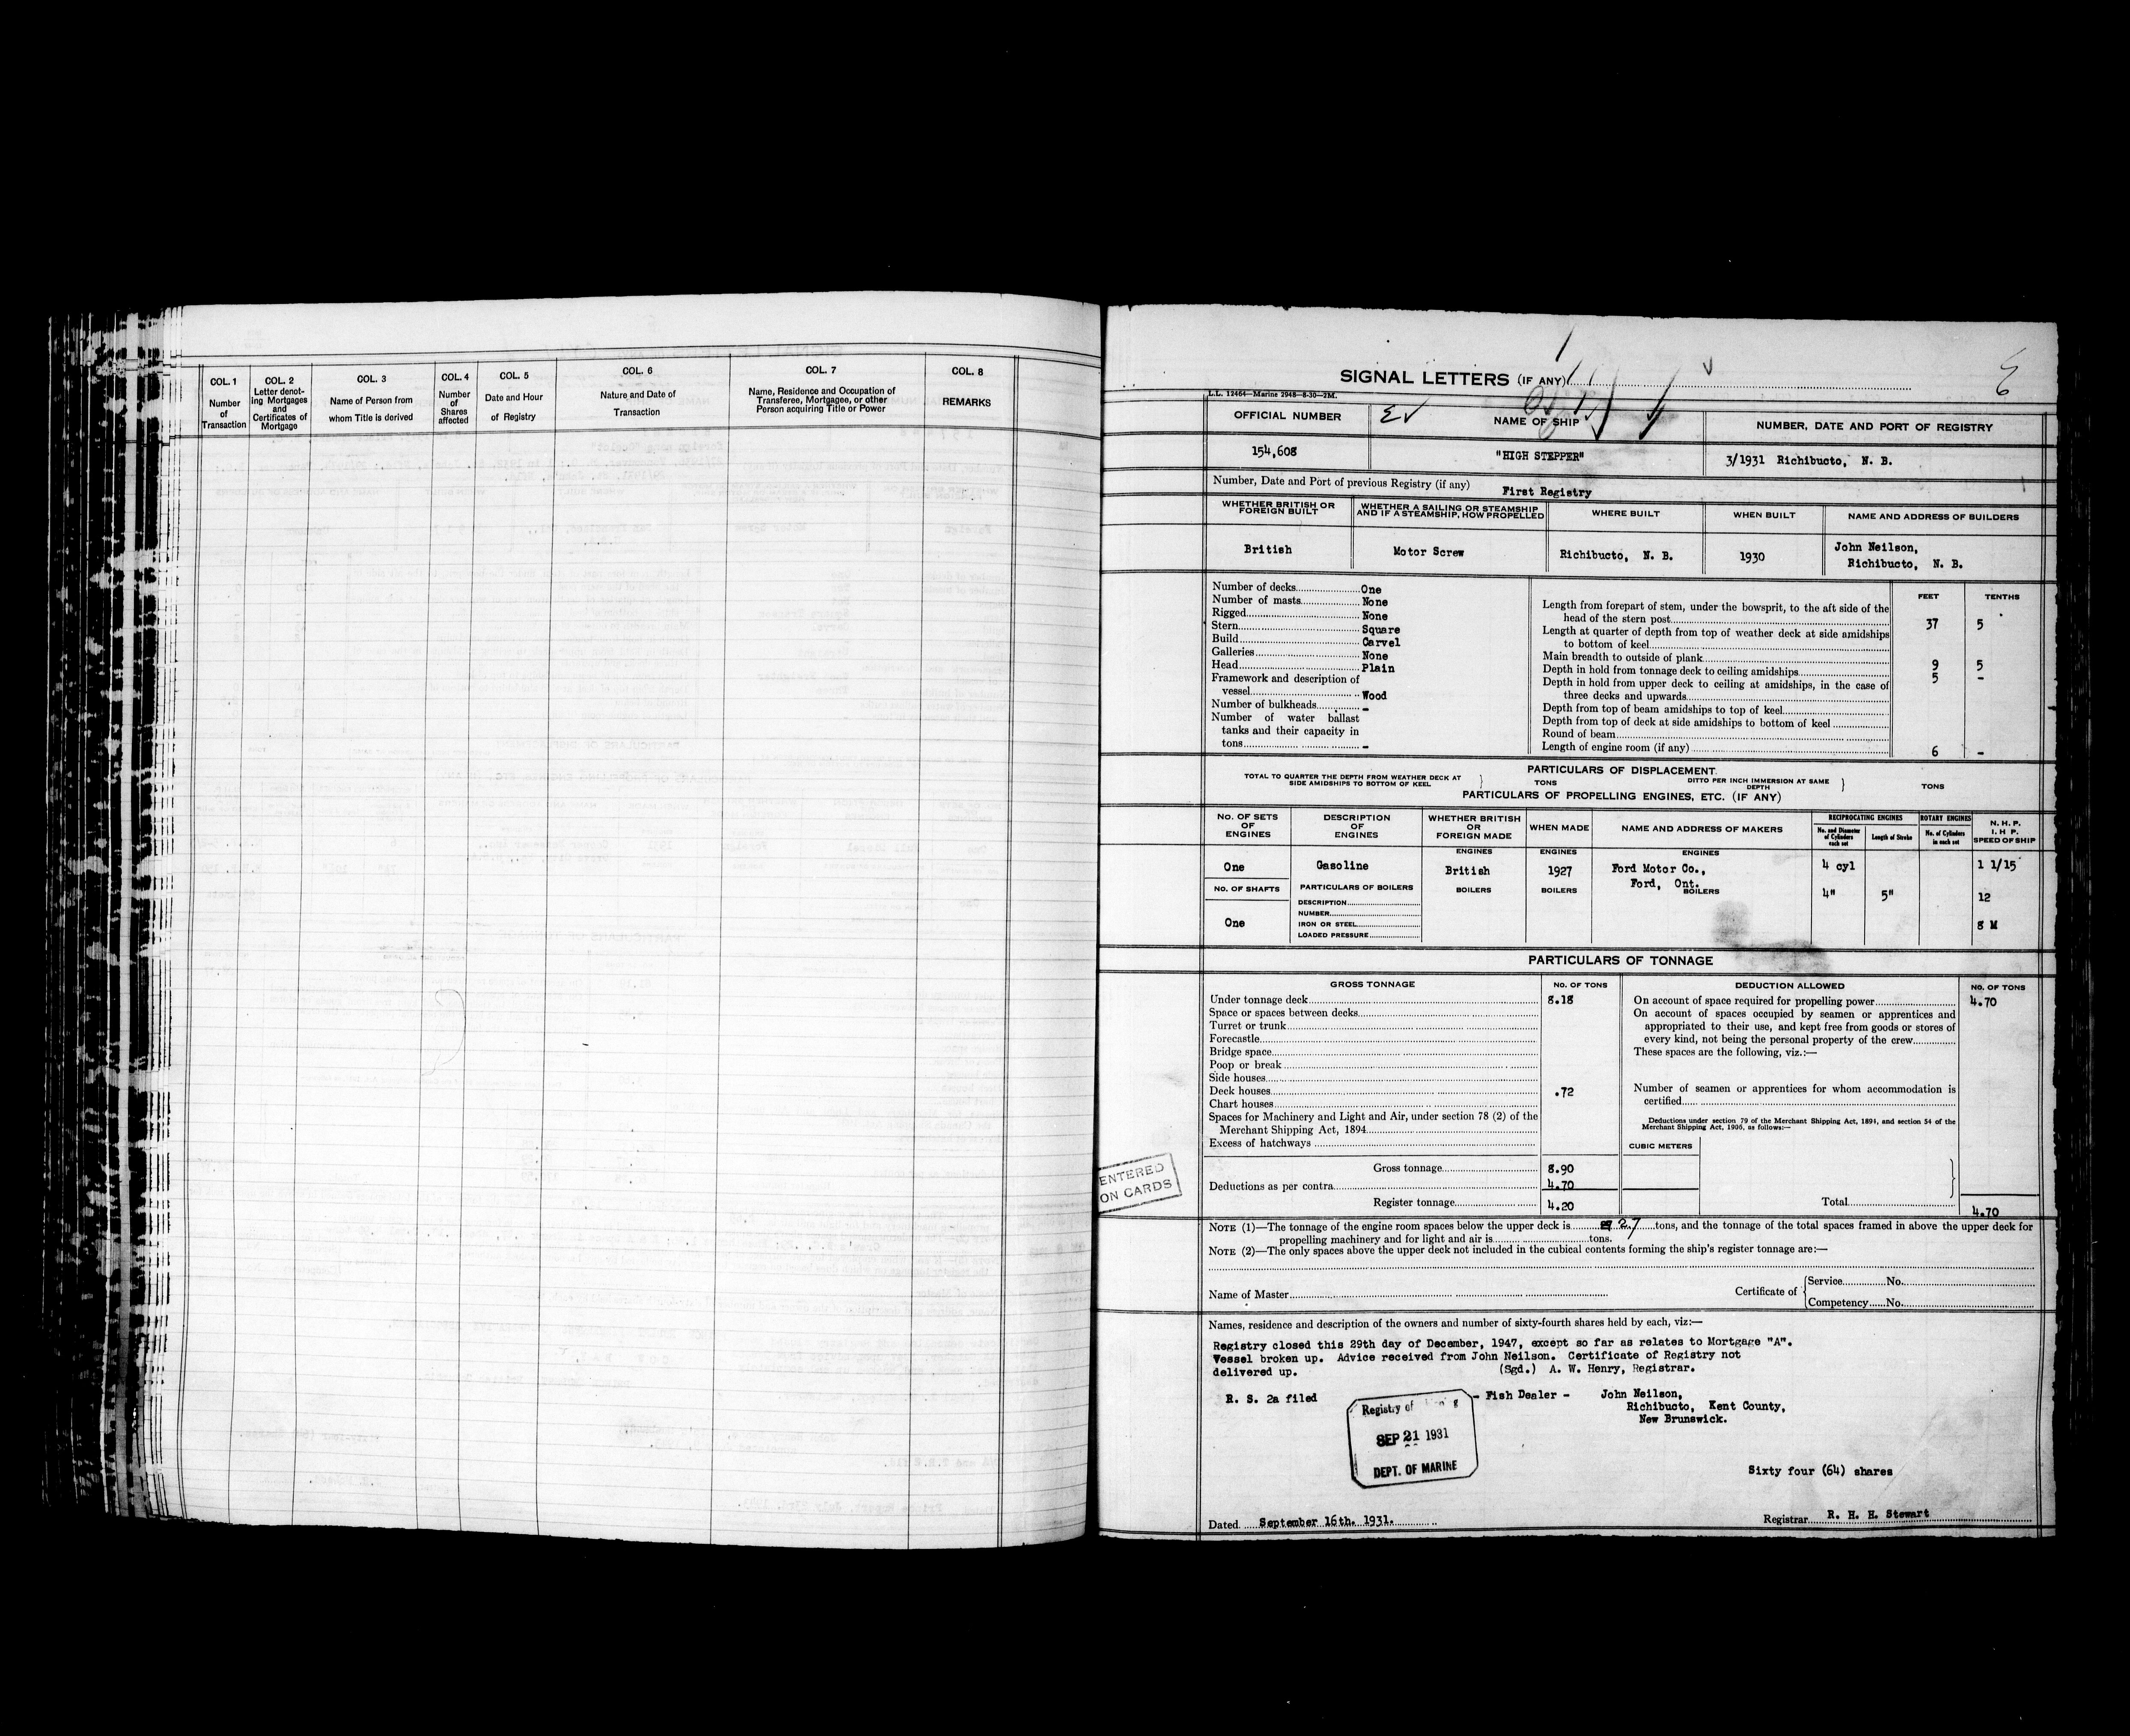 COL. 1
Number
of
Transaction
COL. 2
Letter denot-
ing Mortgages
and
Certificates of
Mortgage
COL. 3
Name of Person from
whom Title is derived
COL. 4
Number
of
Shares
affected
COL. 5
Date and Hour
of Registry
COL. 6
Nature and Date of
Transaction
COL. 7
Name, Residence and Occupation of
Transferee, Mortgagee, or other
Person acquiring Title or Power
COL. 8
REMARKS
SIGNAL LETTERS (IF ANY)
L.L. 12464—Marine 2948—8-30—2M.
OFFICIAL NUMBER
NAME OF SHIP
NUMBER, DATE AND PORT OF REGISTRY
154,608
"HIGH STEPPER"
3/1931 Richibucto, N. B.
Number, Date and Port of previous Registry (if any) First Registry
WHETHER BRITISH OR
FOREIGN BUILT
WHETHER A SAILING OR STEAMSHIP
AND IF A STEAMSHIP, HOW PROPELLED
WHERE BUILT
WHEN BUILT
NAME AND ADDRESS OF BUILDERS
British
Motor Screw
Richibucto, N. B.
1930
John Neilson,
Richibucto, N. B.
Number of decks One
Number of masts None
Rigged None
Stern Square
Build Carvel
Galleries None
Head Plain
Framework and description of
vessel Wood
Number of bulkheads -
Number of water ballast
tanks and their capacity in
tons -
FEET TENTHS
Length from forepart of stem, under the bowsprit, to the aft side of the
head of the stern post 37 5
Length at quarter of depth from top of weather deck at side amidships
to bottom of keel
Main breadth to outside of plank 9 5
Depth in hold from tonnage deck to ceiling amidships 5 -
Depth in hold from upper deck to ceiling at amidships, in the case of
three decks and upwards
Depth from top of beam amidships to top of keel
Depth from top of deck at side amidships to bottom of keel
Round of beam
Length of engine room (if any) 6 -
PARTICULARS OF DISPLACEMENT
TOTAL TO QUARTER THE DEPTH FROM WEATHER DECK AT
SIDE AMIDSHIPS TO BOTTOM OF KEEL
TONS
DITTO PER INCH IMMERSION AT SAME
DEPTH
TONS
PARTICULARS OF PROPELLING ENGINES, ETC. (IF ANY)
NO. OF SETS
OF
ENGINES
DESCRIPTION
OF
ENGINES
WHETHER BRITISH
OR
FOREIGN MADE
WHEN MADE
NAME AND ADDRESS OF MAKERS
RECIPROCATING ENGINES
No. and Diameter
of Cylinders
each set
Length of Stroke
ROTARY ENGINES
No. of Cylinders
in each set
N. H. P.
I. H P.
SPEED OF SHIP
ENGINES
ENGINES
ENGINES
One
Gasoline
British
1927
Ford Motor Co.,
Ford, Ont.
4 cyl
1 1/15
NO. OF SHAFTS
PARTICULARS OF BOILERS
BOILERS
BOILERS
BOILERS
4" 5"
12
One
DESCRIPTION
NUMBER
IRON OR STEEL
LOADED PRESSURE
8 M
PARTICULARS OF TONNAGE
GROSS TONNAGE
NO. OF TONS
DEDUCTION ALLOWED
NO. OF TONS
Under tonnage deck 8.18
Space or spaces between decks
Turret or trunk
Forecastle
Bridge space
Poop or break
Side houses
Deck houses .72
Chart houses
Spaces for Machinery and Light and Air, under section 78 (2) of the
Merchant Shipping Act, 1894
Excess of hatchways
Gross tonnage 8.90
Deductions as per contra 4.70
Register tonnage 4.20
On account of space required for propelling power 4.70
On account of spaces occupied by seamen or apprentices and
appropriated to their use, and kept free from goods or stores of
every kind, not being the personal property of the crew
These spaces are the following, viz.:—
Number of seamen or apprentices for whom accommodation is
certified
Deductions under section 79 of the Merchant Shipping Act, 1894, and section 54 of the
Merchant Shipping Act, 1906, as follows:—
CUBIC METERS
Total 4.70
ENTERED
ON CARDS
NOTE (1)—The tonnage of the engine room spaces below the upper deck is 27 tons, and the tonnage of the total spaces framed in above the upper deck for
propelling machinery and for light and air is tons.
NOTE (2)—The only spaces above the upper deck not included in the cubical contents forming the ship's register tonnage are:—
Name of Master
Certificate of
Service No.
Competency No.
Names, residence and description of the owners and number of sixty-fourth shares held by each, viz:—
Registry closed this 29th day of December, 1947, except so far as relates to Mortgage "A".
Vessel broken up. Advice received from John Neilson. Certificate of Registry not
delivered up. (Sgd.) A. W. Henry, Registrar.
R. S. 2a filed
- Fish Dealer - John Neilson,
Richibucto, Kent County,
New Brunswick.
Registry of
SEP 21 1931
DEPT. OF MARINE
Sixty four (64) shares
Dated September 16th. 1931.
Registrar R. H. H. Stewart